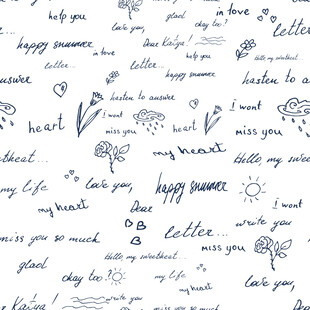 help you
love you,
glad
in love
okay too?
letter
happy summer
in love
Dear Katya!
letter...
letter...
happy summer
Hello, my sweetheat...
answer
hasten to answer
hasten to
heart
I wont
miss you
heart
I wont
miss you
my heart
sweetheat...
Hello, my swee
my life
love you,
happy summer
I wont
my heart
Dear
write you
letter...
miss you so much
miss you
glad
Hello, my sweetheat...
okay too?
my life
love you,
my heart
write you
Dear Katya!
miss you so much